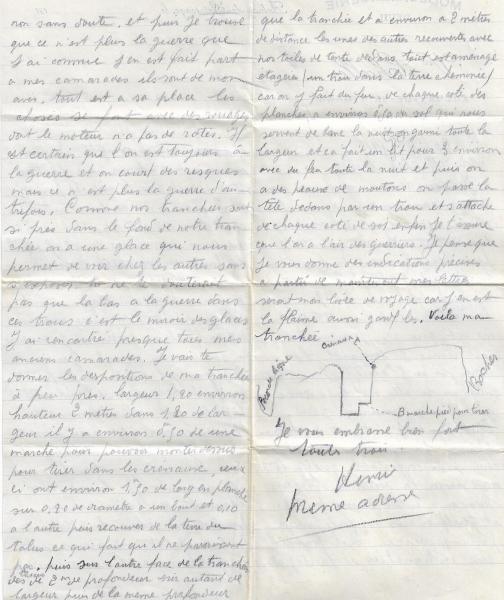 non sans doute. et puis je trouve
que ce n'est plus la guerre que
j'ai connue j'en ait fait part
a mes camarades ils sont de mon
avis. tout est a sa place les
choses se font avec des rouages
dont le moteur n'a pas de ratés. Il
est certain que l'on est toujours à
la guerre et on court des risques
mais ce n'est plus la guerre d'au-
trefois. Comme nos tranchées sont
si près dans le fond de notre tran
chée on a une glace qui nous
permet de voir chez les autres sans
s'exposer. 
pas que la bas a la guerre dans
ces trous c'est le miroir des glaces
J'ai rencontré presque tous mes
anciens camarades. Je vais te
donner les dispositions de ma tranchée
à peu près. largeur 1,20 environ
hauteur 2 mètres dans 1,20 de lar
geur il y a environ 0,50 de une
marche pour pouvoir monter dessus
pour tirer dans les créneaux, ceux
ci ont environ 1,50 de long en planche
sur 0,20 de diamètre a un bout et 0,10
a l'autre puis recouver de la terre du
talus ce qui fait que il ne paraissent
pas. puis sur l'autre face de la tranchée
des trous de 2 me profondeur sur autant de
largeur puis de la meme profondeur
que la tranchée et a environ a 2 mètres
de distance les unes des autres recouvertes avec
nos toiles de tente dedans tout est aménagé
étagère (un trou dans la terre cheminée)
car on y fait du feu. de chaque coté des
planches a environ du sol qui nous
servent de banc la nuit on garni toute la
largeur et ca fait un lit pour 3 environ
avec du feu toute la nuit et puis on
a des peaux de moutons on passe la
tête dedans par un trou et s'attache
de chaque coté de soi enfin je t'assure
que l'on a l'air des guerriers. Je pense que
je vous donne des indications précises
a partir de maintenant mes lettres
seront mon livre de voyage car j'en ai
la flemme aussi gardez les. Voila ma
tranchée
Créneaux
Boches
Banche pied pour tirer
Je vous embrasse bien fort
toutes trois
Henri
meme adresse